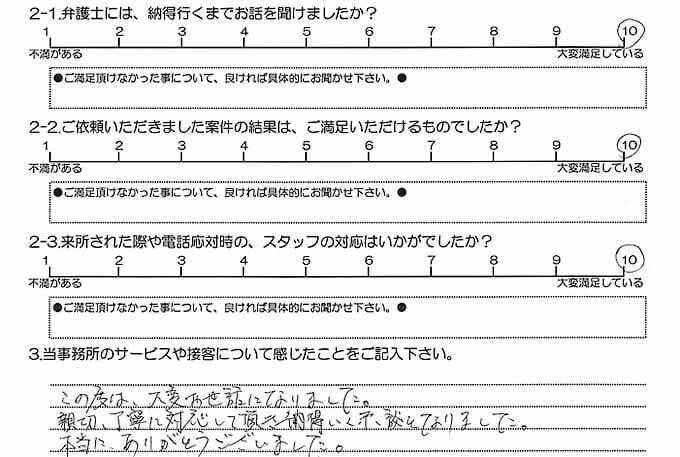 2-1.弁護士には、納得行くまでお話を聞けましたか？
1 2 3 4 5 6 7 8 9 10
不満がある 大変満足している
●ご満足頂けなかった事について、良ければ具体的にお聞かせ下さい。●
2-2.ご依頼いただきました案件の結果は、ご満足いただけるものでしたか？
1 2 3 4 5 6 7 8 9 10
不満がある 大変満足している
●ご満足頂けなかった事について、良ければ具体的にお聞かせ下さい。●
2-3.来所された際や電話応対時の、スタッフの対応はいかがでしたか？
1 2 3 4 5 6 7 8 9 10
不満がある 大変満足している
●ご満足頂けなかった事について、良ければ具体的にお聞かせ下さい。●
3.当事務所のサービスや接客について感じたことをご記入下さい。
この度は、大変お世話になりました。
親切、丁寧に対応して頂き納得いく示談となりました。
本当に、ありがとうございました。